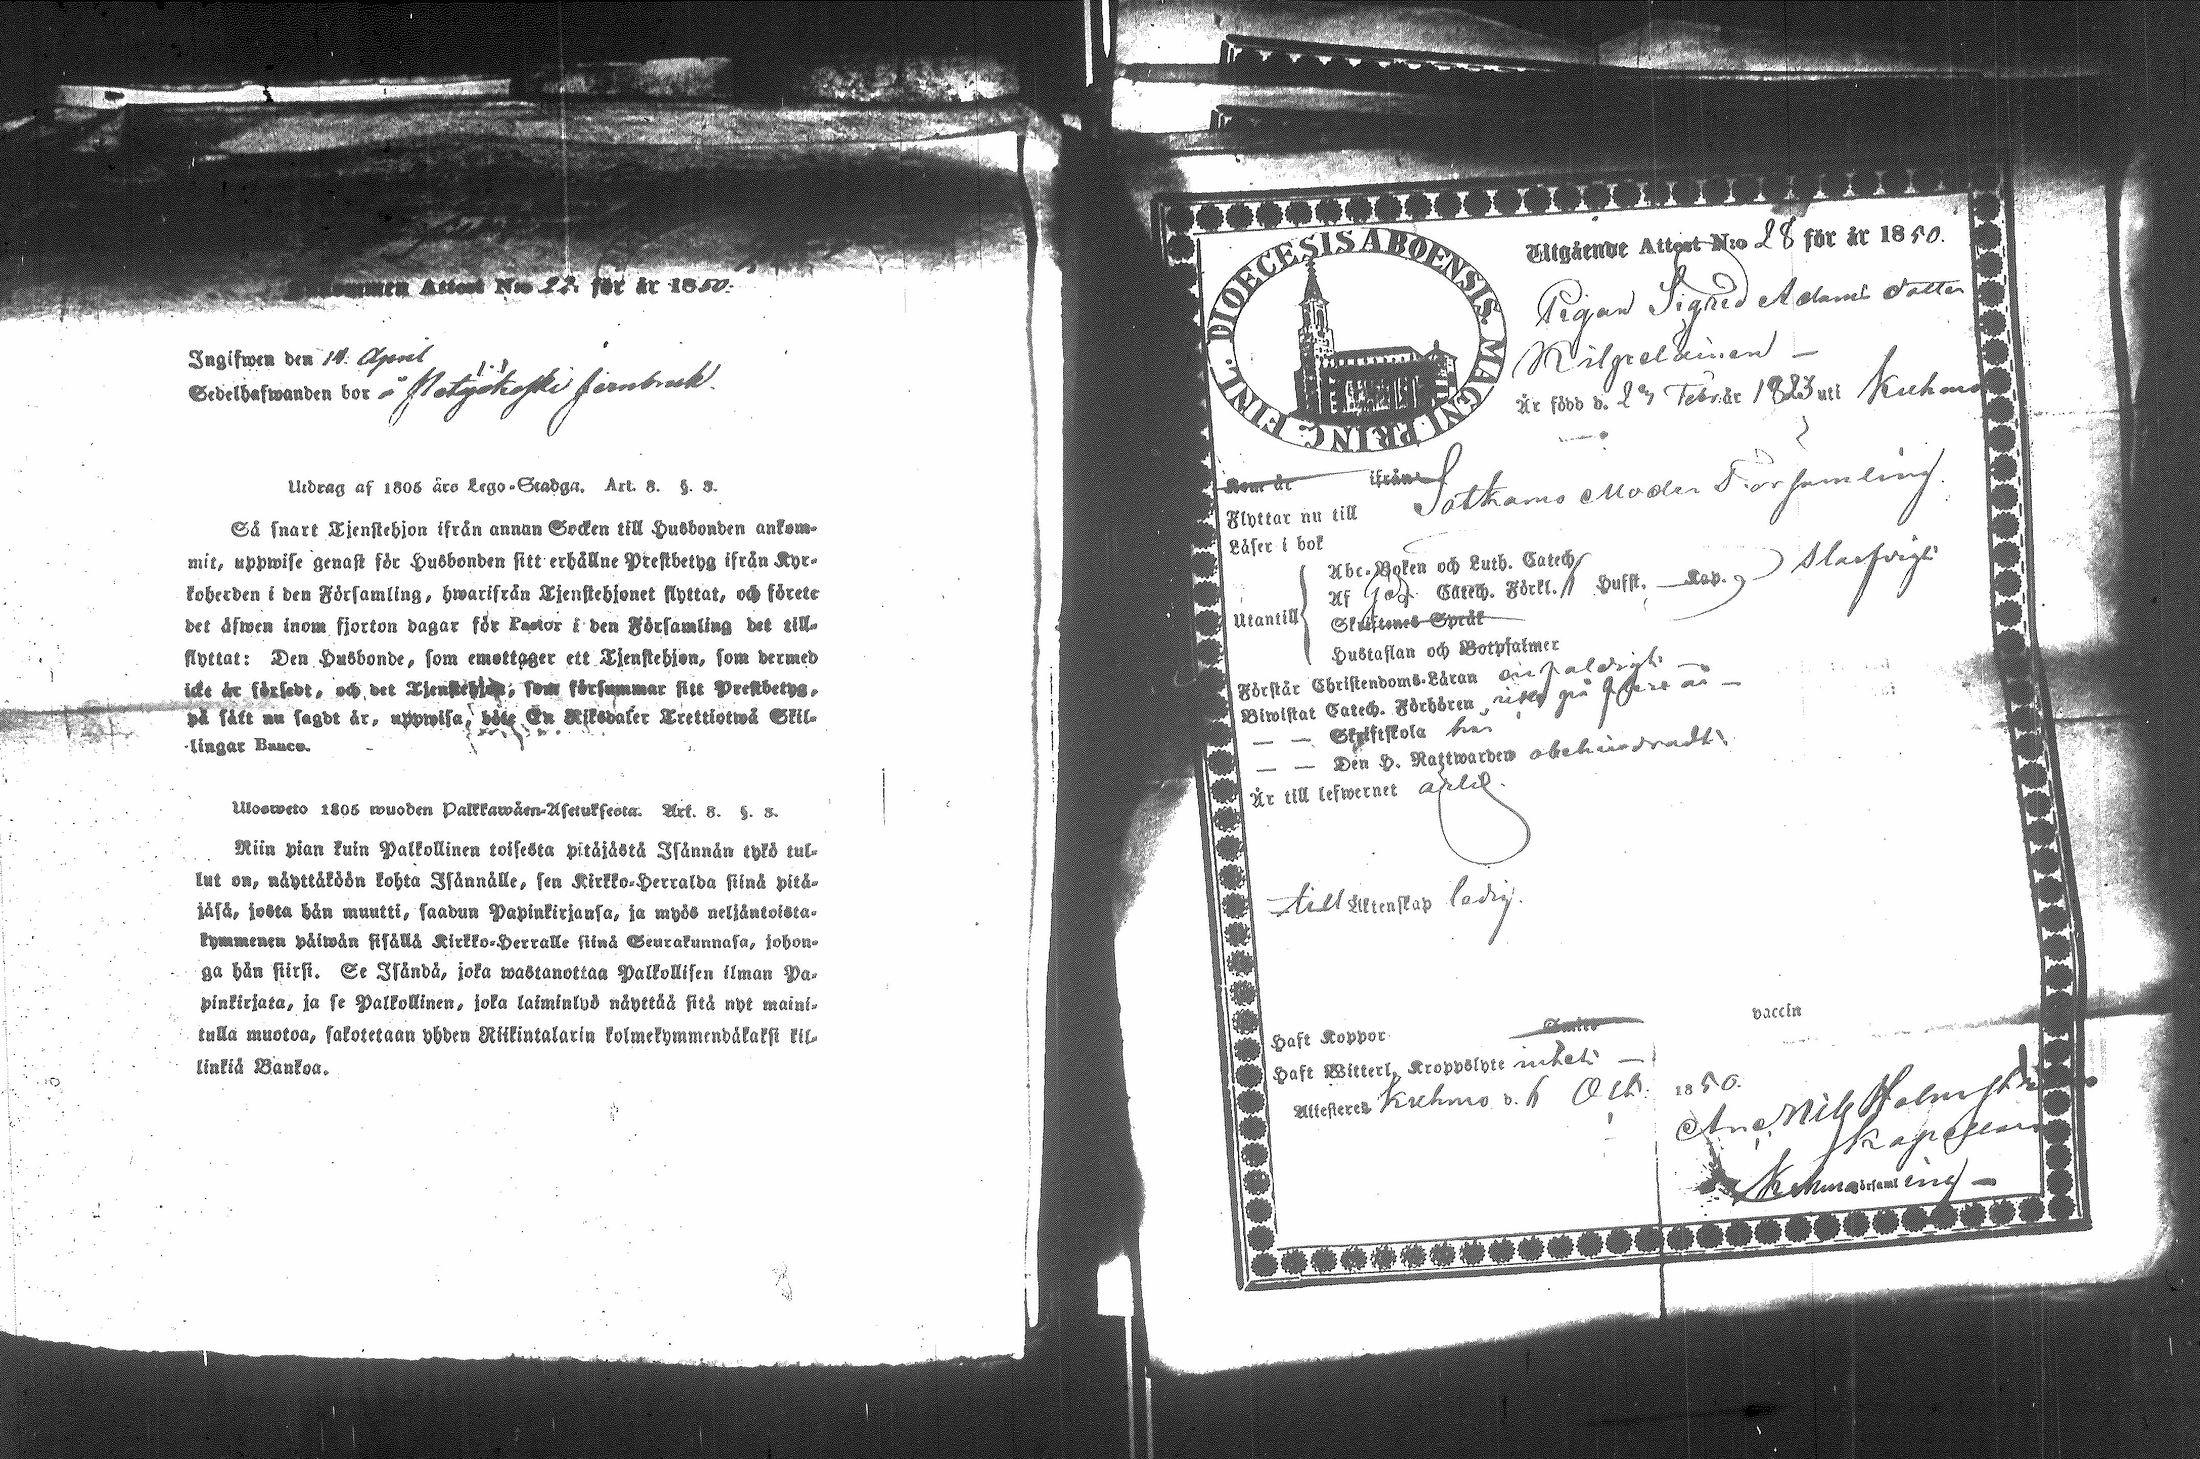 Attest N:o 22. för år 1850.
Ingifwen den 14. April
Sedelhafwanden bor å
Utdrag af 1805 års Lego-Stadga. Art. 8. §. 3.
Så snart Tjenstehjon ifrån annan Socken till Husbonden ankom-
mit, uppwise genast för Husbonden sitt erhållne Prestbetyg ifrån Kyr-
koherden i den Församling, hwarifrån Tjenstehjonet flyttat, och förete
det äfwen inom fjorton dagar för Pastor i den Församling det till-
flyttat: Den Husbonde, som emottager ett Tjenstehjon, som dermed
icke är försedt, och det Tjenstehjon, som försummar sitt Prestbetyg,
på sätt nu sagdt är, uppwisa, böte En Riksdaler Trettiotwå Skil-
lingar Banco.
Ulosweto 1805 wuoden Palkkawäen-Asetuksesta. Art. 8. §. 3.
Niin pian kuin Palkollinen toisesta pitäjästä Isännän tykö tul-
lut on, näyttäköön kohta Isännälle, sen Kirkko-Herralda siinä pitä-
jäsä, josta hän muutti, saadun Papinkirjansa, ja myös neljäntoista-
kymmenen päiwän sisällä Kirkko-Herralle siinä Seurakunnasa, johon-
ga hän siirsi. Se Isändä, joka wastanottaa Palkollisen ilman Pa-
pinkirjata, ja se Palkollinen, joka laiminlyö näyttää sitä nyt maini-
tulla muotoa, sakotetaan yhden Riikintalarin kolmekymmendäkaksi kil-
linkiä Bankoa.
DIOECESIS ABOENSIS. MAGNI PRINC. FINL.
Utgående Attest N:o 28 för år 1850.
Pigan Sigrid Adams dotter
Kilpeläinen
Är född d. 27 Febr. år 1823 uti Kuhmo
Kom år ifrån
Flyttar nu till Sotkamo Moder Församling.
Läser i bok
Utantill
Abc-Boken och Luth. Catech.
Af Catech. Förkl. Husst. Kap. slarfvigt
Skriftenes Språk
Hustaflan och Botpsalmer
Förstår Christendoms-Läran enfaldigt
Biwistat Catech. Förhören
— — Skriftskola
— — Den H. Nattwarden obehindradt
Är till lefwernet ärlig.
till Äktenskap ledig.
Haft Koppor Smitt vaccin
Haft Witterl. Kroppslyte intet
Attesterer Kuhmo d. 6 Oct. 1850.
And. Nils Holmström
Kapellan
Kuhmo församling